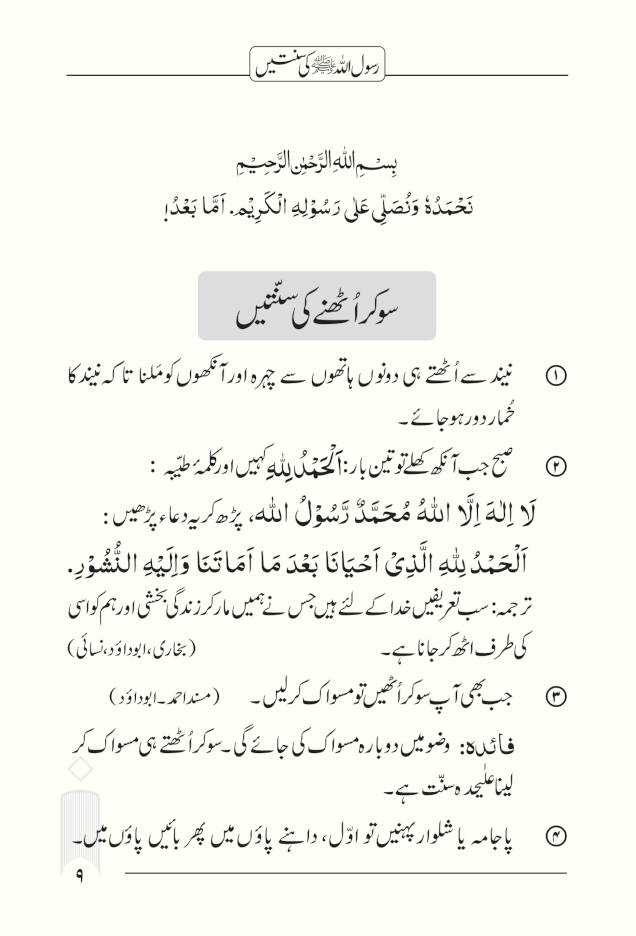 رسول اللہ ﷺ کی سنتیں
بِسْمِ اللهِ الرَّحْمٰنِ الرَّحِيْمِ
نَحْمَدُهٗ وَنُصَلِّىْ عَلٰى رَسُوْلِهِ الْكَرِيْمِ. اَمَّا بَعْدُ!
سو کر اُٹھنے کی سنّتیں
۱ نیند سے اُٹھتے ہی دونوں ہاتھوں سے چہرہ اور آنکھوں کو مَلنا تا کہ نیند کا
خُمار دور ہو جائے۔
۲ صبح جب آنکھ کھلے تو تین بار: اَلْحَمْدُ لِلّٰهِ کہیں اور کلمۂ طیّبہ :
لَا اِلٰهَ اِلَّا اللهُ مُحَمَّدٌ رَّسُوْلُ الله، پڑھ کر یہ دعاء پڑھیں :
اَلْحَمْدُ لِلّٰهِ الَّذِىْ اَحْيَانَا بَعْدَ مَا اَمَاتَنَا وَاِلَيْهِ النُّشُوْرِ.
ترجمہ: سب تعریفیں خدا کے لئے ہیں جس نے ہمیں مار کر زندگی بخشی اور ہم کو اسی
کی طرف اٹھ کر جانا ہے۔ (بخاری، ابوداؤد، نسائی)
۳ جب بھی آپ سو کر اُٹھیں تو مسواک کر لیں۔ (مسند احمد۔ ابوداؤد)
فائدہ: وضو میں دوبارہ مسواک کی جائے گی۔ سو کر اُٹھتے ہی مسواک کر
لینا علٰیحدہ سنّت ہے۔
۴ پاجامہ یا شلوار پہنیں تو اوّل، داہنے پاؤں میں پھر بائیں پاؤں میں۔
۹